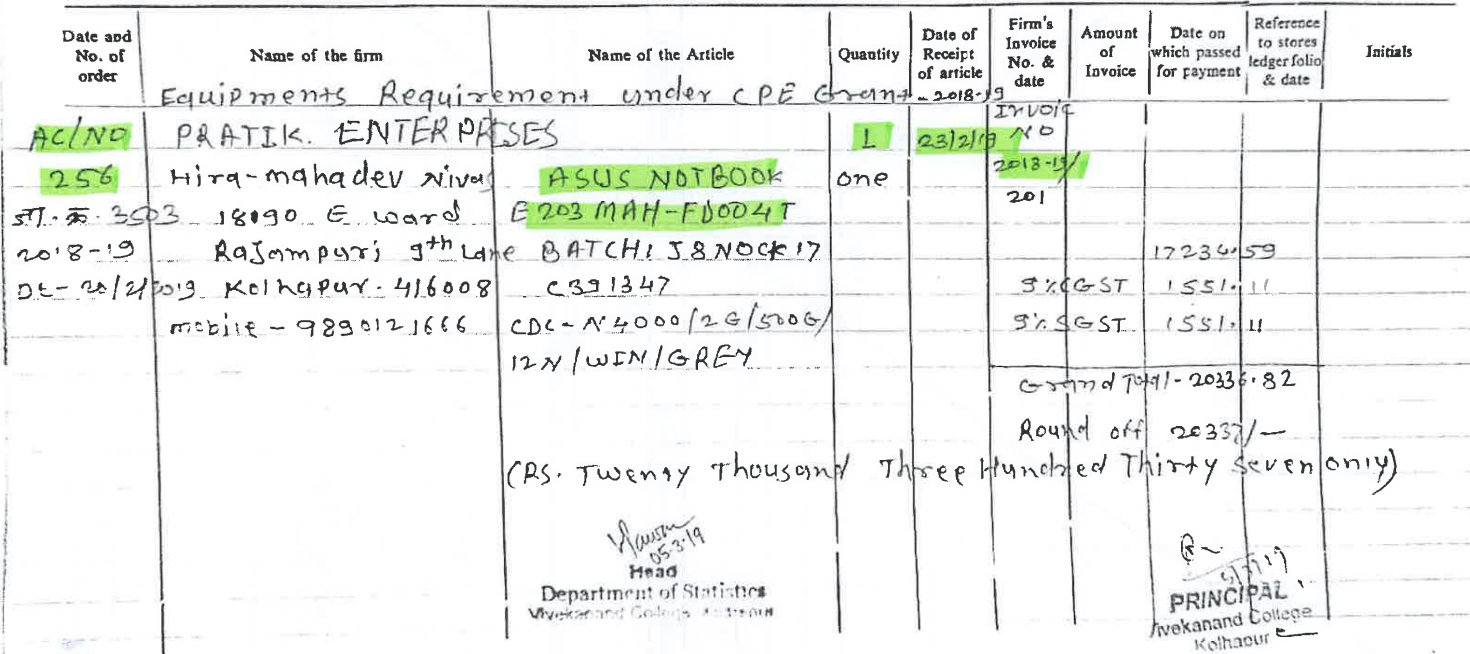 Date and No. of order Name of the firm Name of the Article Quantity Date of Receipt of article Firm's Invoice No. & date Amount of Invoice Date on which passed for payment Reference to stores ledger folio & date Initials
Equipments Requirement under CPE Grant - 2018-19
AC/NO PRATIK. ENTERPRISES 1 23/2/19 Invoic NO
256 Hira-mahadev Nivas ASUS NOTBOOK one 2018-19/
जा.क्र. 3503 18090 E ward E 203 MAH-FD004T 201
2018-19 RaJampuri 9th Lane BATCH: J8NOCK17 17234.59
Dt- 20/2/2019 Kolhapur. 416008 C391347 9% CGST 1551.11
mobile - 9890121666 CDC-N4000/2G/500G/ 9% SGST 1551.11
12N/WIN/GREY
Grand Total - 20336.82
Round off 20337/-
(RS. Twenty Thousand Three Hundred Thirty Seven only)
05-3-19
Head
Department of Statistics
Vivekanand College, Kolhapur
PRINCIPAL
Vivekanand College
Kolhapur